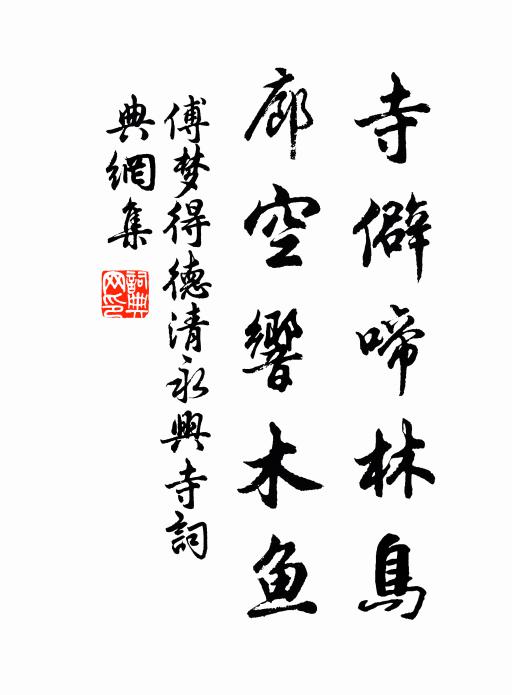 寺僻啼林鳥
廊空響木鱼
傅梦得德清永興寺詞
典網集
詞典
网印